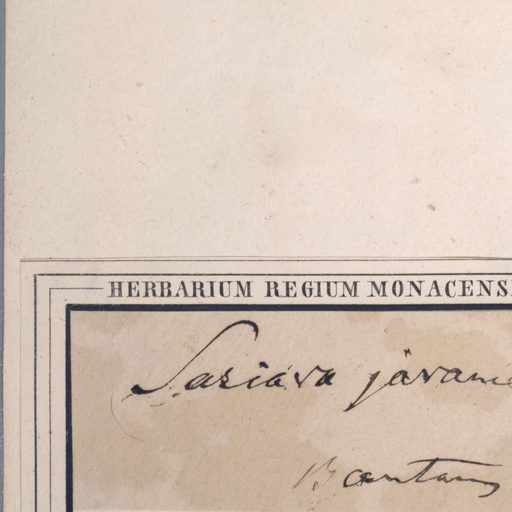 HERBARIUM REGIUM MONACENS
Sariava javan
Bantam